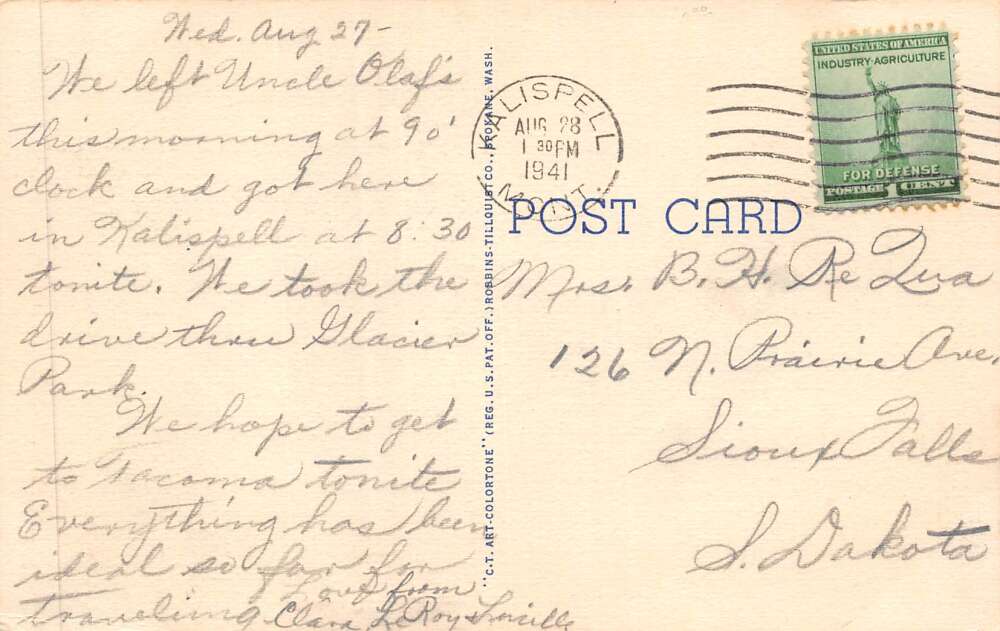 Wed. Aug 27-
We left Uncle Olaf's
this morning at 9 o'
clock and got here
in Kalispell at 8:30
tonite. We took the
drive thru Glacier
Park.
We hope to get
to Tacoma tonite
Everything has been
ideal so far for
traveling
Love from
Clara, LeRoy + Lucille
"C.T. ART-COLORTONE" (REG. U.S. PAT. OFF.) ROBBINS-TILLQUIST CO., SPOKANE, WASH.
KALISPELL
AUG 28
1 30 PM
1941
MONT.
UNITED STATES OF AMERICA
INDUSTRY·AGRICULTURE
FOR DEFENSE
POSTAGE 1 CENT
POST CARD
Mrs. B. H. Re Qua
126 N. Prairie Ave.
Sioux Falls
S. Dakota